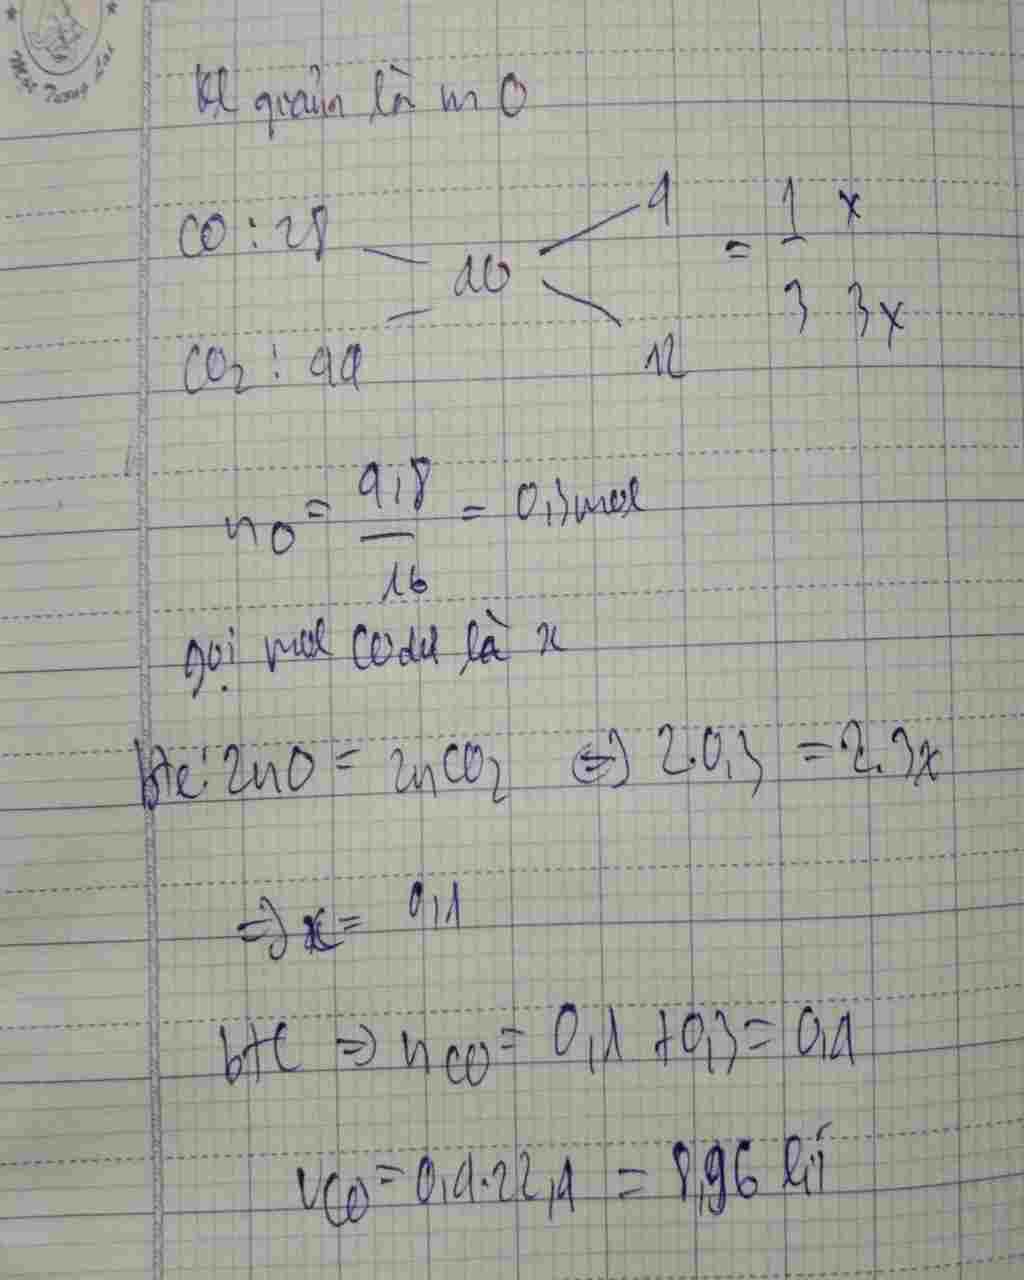 Kl giảm là m O
CO : 28 4 = 1 x
40
CO2 : 44 12 3 3x
nO = 4,8 / 16 = 0,3 mol
gọi mol CO dư là x
bte: 2nO = 2nCO2 <=> 2.0,3 = 2.3x
=> x = 0,1
btC => nCO = 0,1 + 0,3 = 0,4
VCO = 0,4.22,4 = 8,96 lít